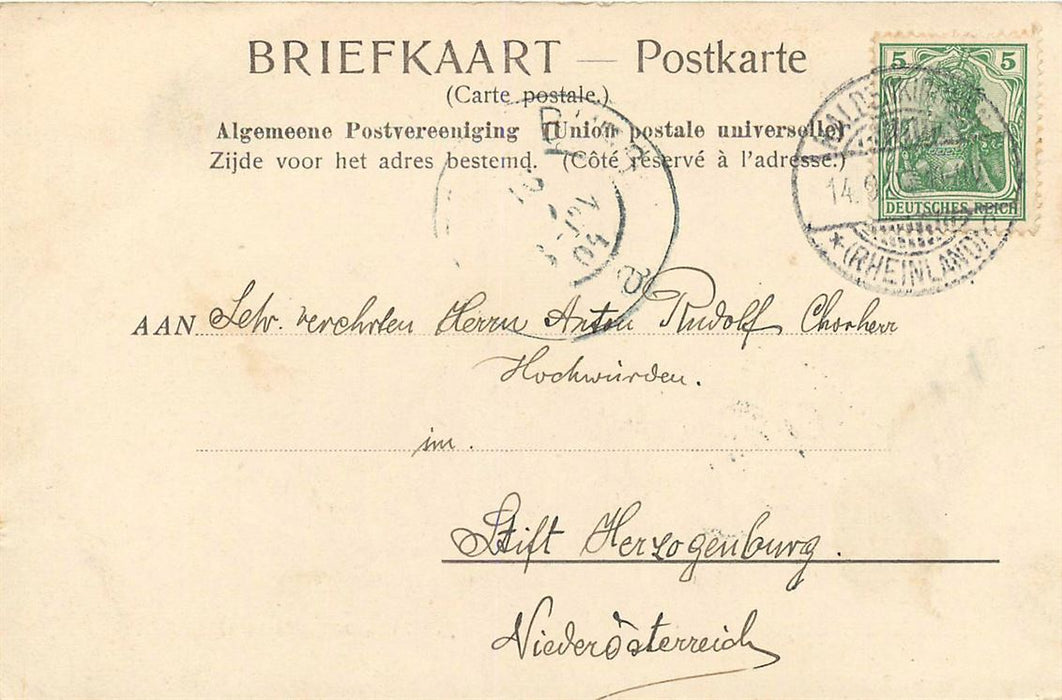 BRIEFKAART — Postkarte
(Carte postale.)
Algemeene Postvereeniging Union postale universelle
Zijde voor het adres bestemd. (Côté réservé à l'adresse.)
5 5
DEUTSCHES REICH
14.
* (RHEINLAND)
AAN Sehr. verehrten Herrn Anton Rudolf Chorherr
Hochwürden.
im.
Stift Herzogenburg.
Niederösterreich